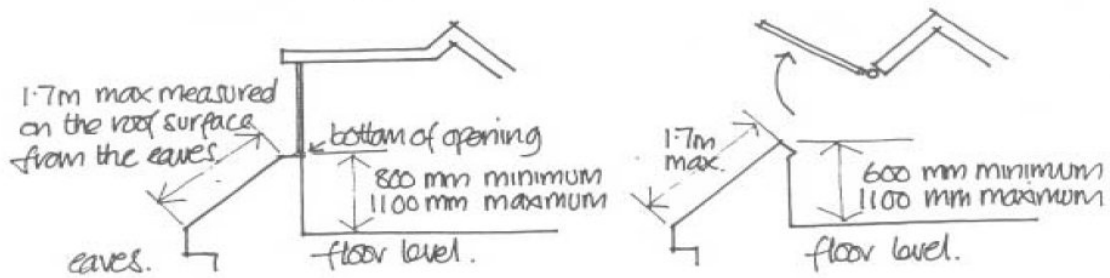 1.7m max measured
on the roof surface
from the eaves.
bottom of opening
800 mm minimum
1100 mm maximum
eaves.
floor level.
1.7m
max.
600 mm minimum
1100 mm maximum
floor level.